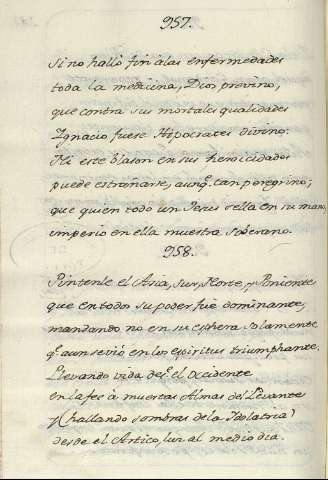 957.
Si no halló fin à las enfermedades
toda la medicina, Dios previno,
que contra sus mortales qualidades
Ignacio fuese Hipocrates divino:
Ni este blason en sus heroicidades
puede estrañarse, aunq. tan peregrino;
que quien todo un Jesus sella en su mano,
imperio en ella muestra soberano.
958.
Pintenle el Asia, Sur, Norte, y Poniente
que en todos su poder fue dominante,
mandando, no en su esphera solamente
q. aun se vió en los espiritus triumphante.
Llevando vida desde el Occidente
en la fee à muertas Almas del Levante
y (hallando sombras de la Idolatria)
desde el Artico, luz al medio dia.